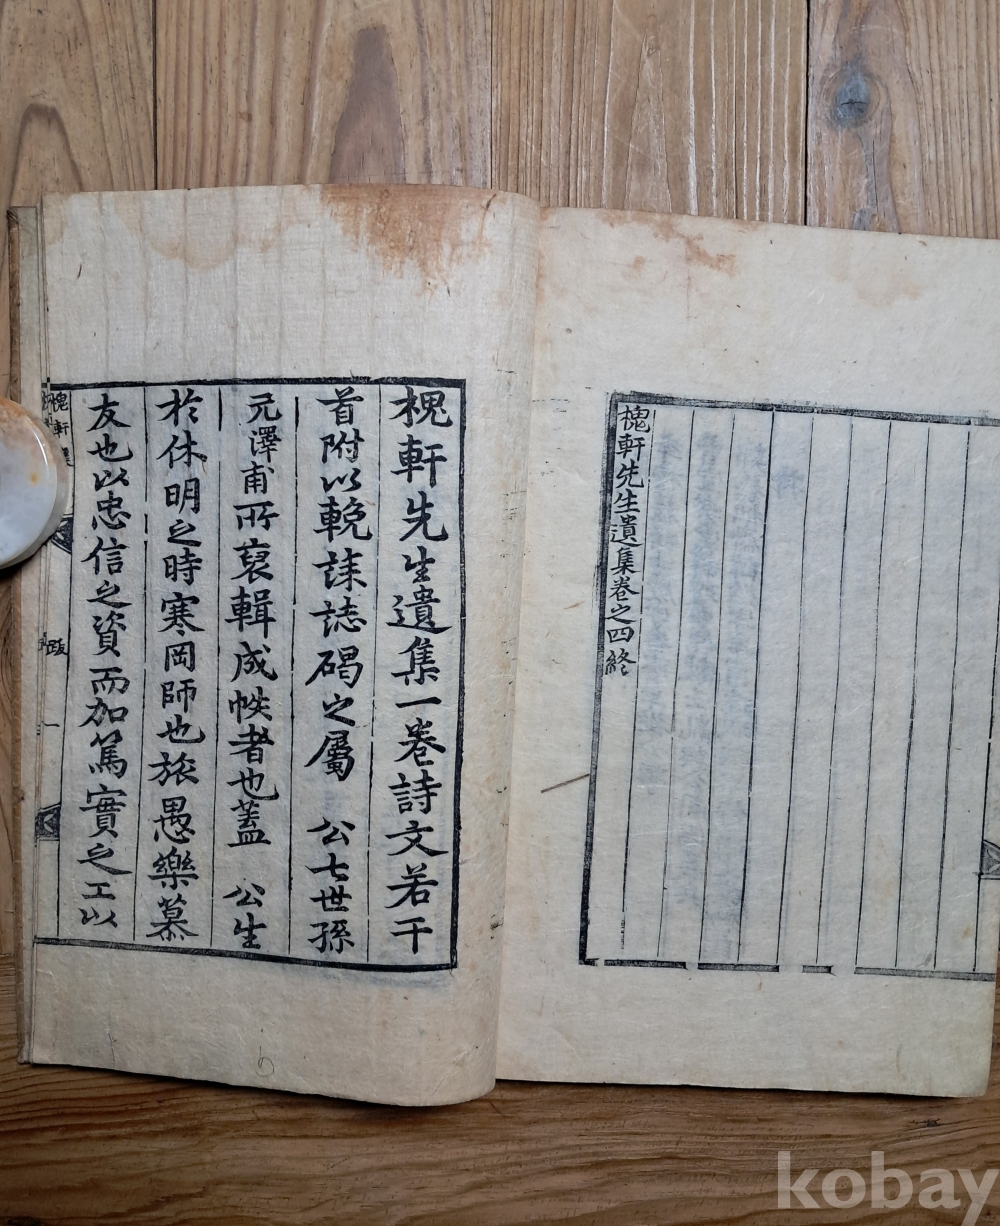 槐軒先生遺集卷之四終
槐軒先生遺集一卷詩文若干
首附以輓誄誌碣之屬 公七世孫
元澤甫所裒輯成帙者也蓋 公生
於休明之時寒岡師也旅愚樂慕
友也以忠信之資而加篤實之工以
槐軒集
跋
一
kobay